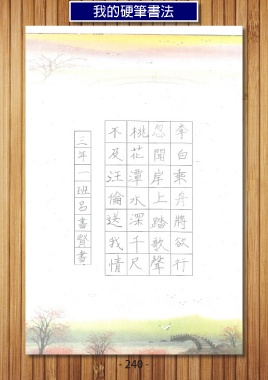 我的硬筆書法
李白乘舟將欲行
忽聞岸上踏歌聲
桃花潭水深千尺
不及汪倫送我情
三年一班呂書賢書
- 240 -